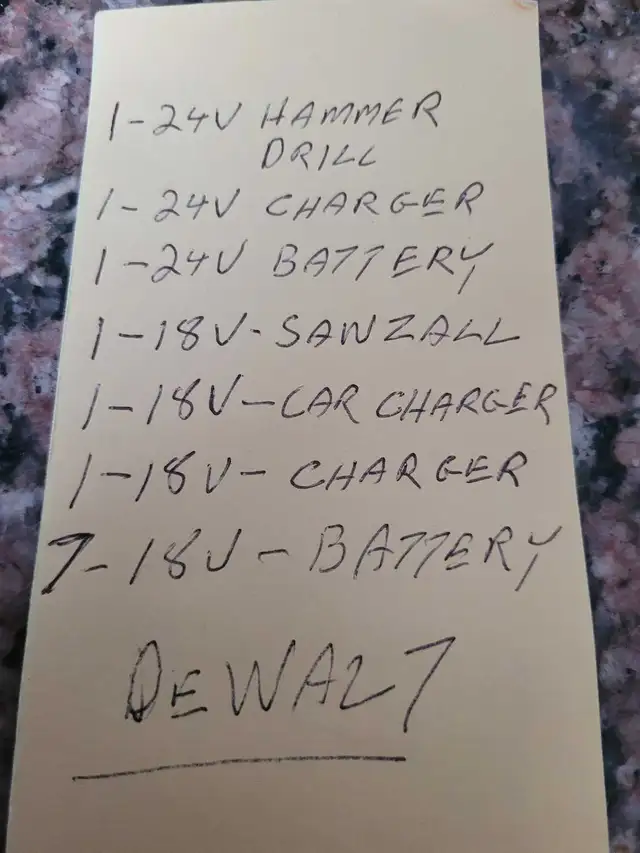 1-24V HAMMER
DRILL
1-24V CHARGER
1-24V BATTERY
1-18V-SAWZALL
1-18V-CAR CHARGER
1-18V-CHARGER
7-18V-BATTERY
DEWALT